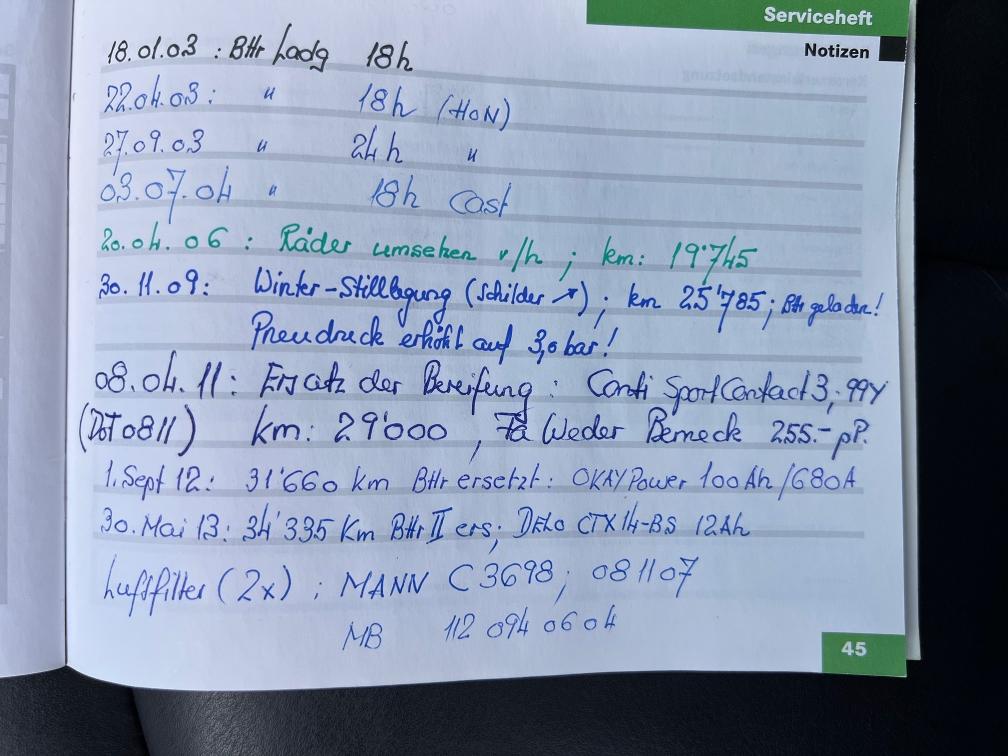 Serviceheft
Notizen
18.01.03 : Bttr Ladg 18h
22.04.03 : " 18h (HoN)
27.09.03 " 24h "
03.07.04 " 18h Cast
20.04.06 : Räder umsetzen v/h ; km: 19'745
30.11.09: Winter-Stilllegung (Schilder ↗) ; km 25'785; Bttr geladen!
Pneudruck erhöht auf 3,0 bar!
08.04.11: Ersatz der Bereifung : Conti SportContact 3, 99Y
(DOT 0811) km: 29'000 , Fa Weder Berneck 255.- pP.
1. Sept 12: 31'660 km Bttr ersetzt: OKAY Power 100Ah /680A
30. Mai 13: 34'335 Km Bttr II ers; CTX14-BS 12Ah
Luftfilter (2x) ; MANN C3698 ; 081107
MB 112 094 06 04
45